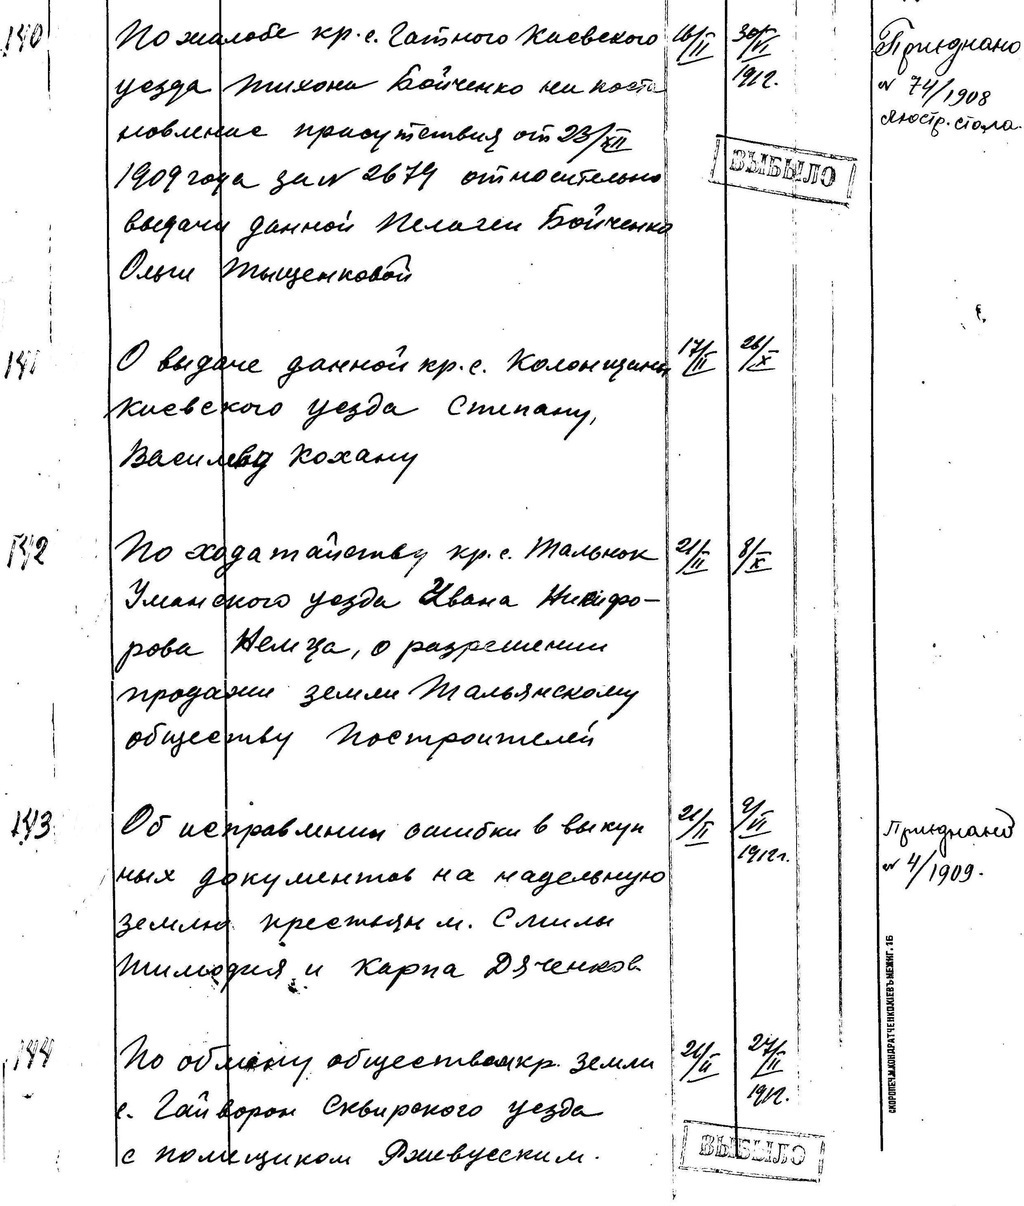 140 По жалобе кр. с. Гатного Киевского 16/II 30/VI Приєднано
уезда Тихона Бойченко на поста 1912. № 74/1908
новление присутствия от 23/XII люстр. стола.
1909 года за № 2679 относительно ВЫБЫЛО
выдачи данной Пелагеи Бойченко
Ольги Тыщенковой
141 О выдаче данной кр. с. Колонщины 17/II 26/X
Киевского уезда Степану,
Василеву Кохану
142 По ходатайству кр. с. Тальнок 21/II 8/X
Уманского уезда Ивана Никифо-
рова Немца, о разрешении
продажи земли Тальянскому
обществу Построителей
143 Об исправлении ошибки в выкуп 21/II 9/VI Приєднано
ных документов на надельную 1912г. № 4/1909.
землю крестьян м. Смилы
Тимофия и Карпа Дяченков
144 По обмену обществом кр. земли 21/II 27/II
с. Гайворон Сквирского уезда 1912.
с помещиком Ржевусским. ВЫБЫЛО
СКОРОПЕЧ. М. КОНДРАТЧЕНКО. КІЕВЪ МЕЖИГ. 1Б